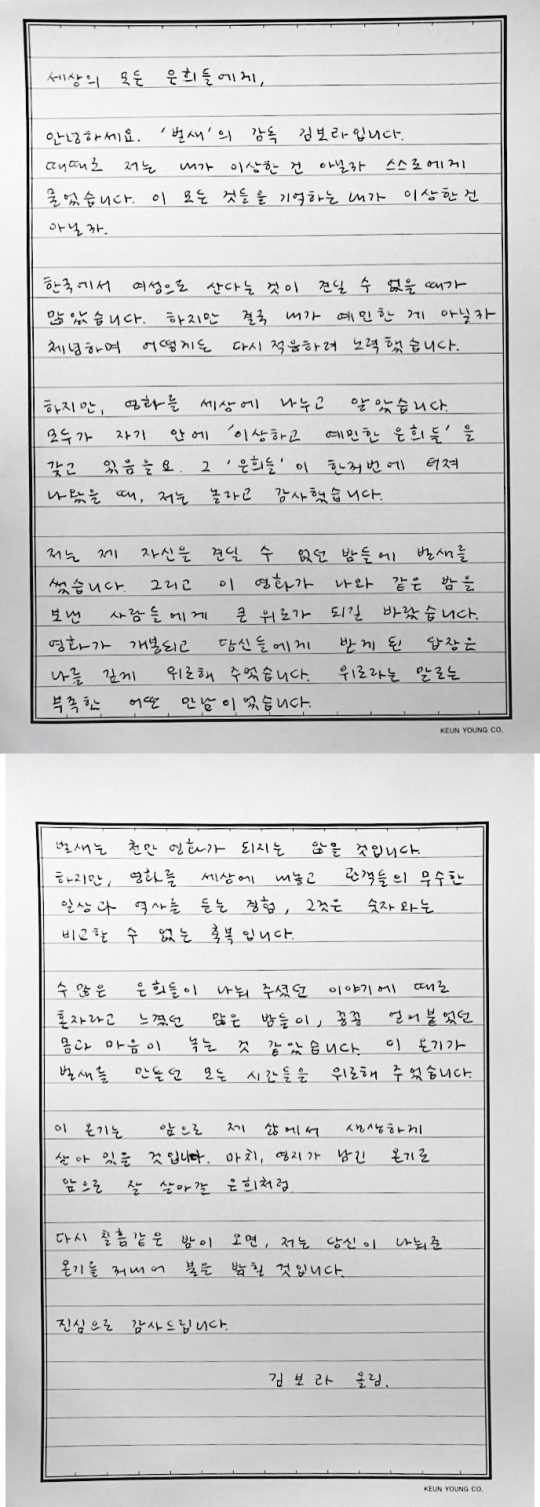 세상의 모든 은희들에게,
안녕하세요. '벌새'의 감독 김보라입니다.
때때로 저는 내가 이상한 건 아닐까 스스로에게
물었습니다. 이 모든 것들을 기억하는 내가 이상한 건
아닐까.
한국에서 여성으로 산다는 것이 견딜 수 없을 때가
많았습니다. 하지만 결국 내가 예민한 게 아닐까
체념하며 어떻게든 다시 적응하려 노력했습니다.
하지만, 영화를 세상에 나누고 알았습니다.
모두가 자기 안에 '이상하고 예민한 은희들'을
갖고 있음을요. 그 '은희들'이 한꺼번에 터져
나왔을 때, 저는 놀라고 감사했습니다.
저는 제 자신을 견딜 수 없던 밤들에 벌새를
썼습니다. 그리고 이 영화가 나와 같은 밤을
보낸 사람들에게 큰 위로가 되길 바랐습니다.
영화가 개봉되고 당신들에게 받게 된 답장은
나를 깊게 위로해 주었습니다. 위로라는 말로는
부족한 어떤 만남이었습니다.
KEUN YOUNG CO.
벌새는 천만 영화가 되지는 않을 것입니다.
하지만, 영화를 세상에 내놓고 관객들의 무수한
일상과 역사를 듣는 경험, 그것은 숫자와는
비교할 수 없는 축복입니다.
수많은 은희들이 나눠 주셨던 이야기에 때로
혼자라고 느꼈던 많은 밤들이, 꽁꽁 얼어붙었던
몸과 마음이 녹는 것 같았습니다. 이 온기가
벌새를 만들던 모든 시간들을 위로해 주었습니다.
이 온기는 앞으로 제 삶에서 생생하게
살아 있을 것입니다. 마치, 영지가 남긴 온기로
앞으로 잘 살아갈 은희처럼.
다시 칠흙같은 밤이 오면, 저는 당신이 나눠준
온기를 꺼내어 불을 밝힐 것입니다.
진심으로 감사드립니다.
김보라 올림.
KEUN YOUNG CO.